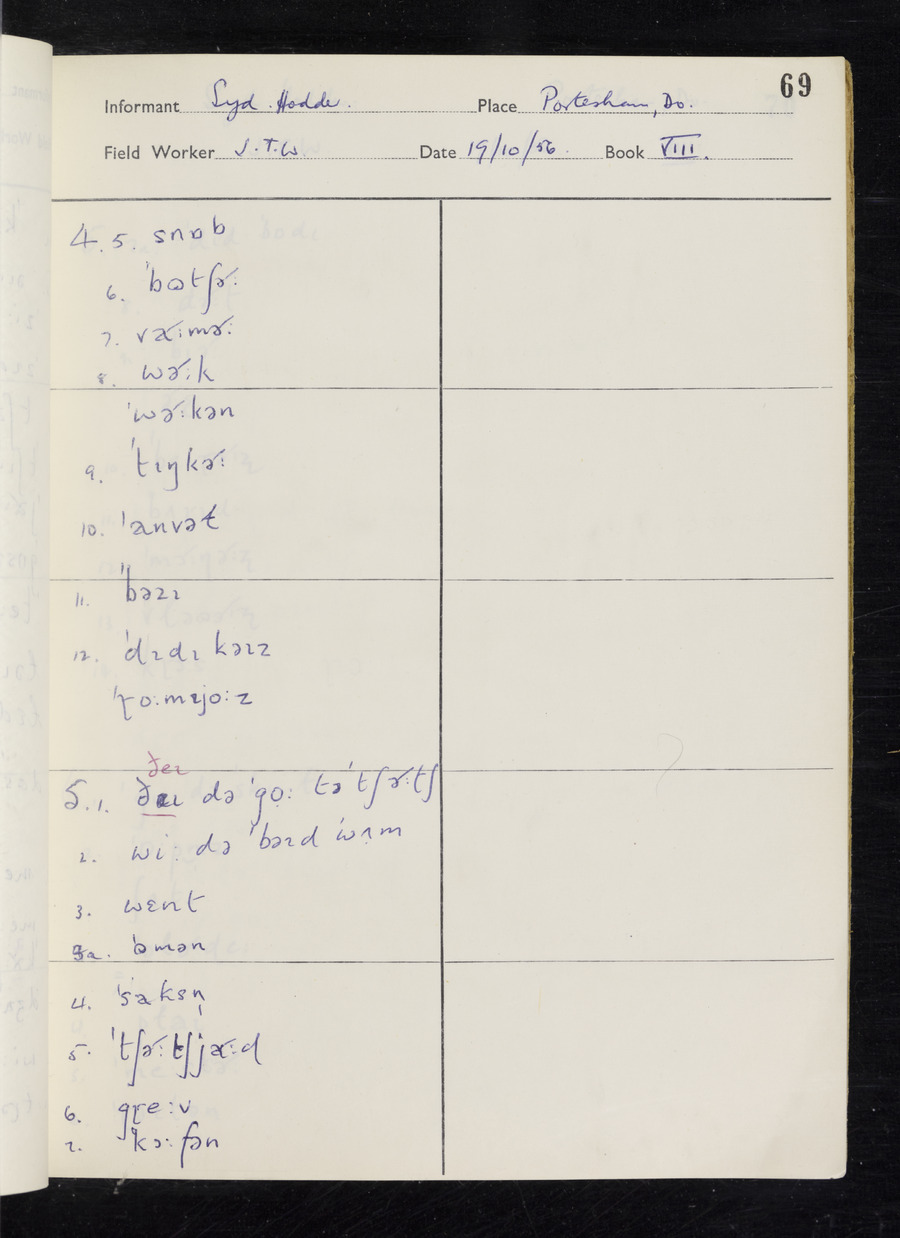 69
Informant Syd. Hodde. Place Portesham, Do.
Field Worker J.T.W. Date 19/10/56. Book VIII.
4.5. snɒb
6. ˈbɷtʃɚː
7. væːmɚː
8. wɚːk
ˈwɚːkən
9. ˈtɪŋkɚː
10. ˈanvət
11. ˈbəzɪ
12. ˈdɪdɪ kəɪz
ˈɽoːmɪjoːz
ðeɪ
5.1. də ˈgo̜ː tə ˈtʃɚːtʃ
2. wiː də ˈbəɪd
3. wɛnt
3a. ˈɒmən
4. ˈsaksn̩
5. ˈtʃɚːtʃjæːd
6. gɽeːv
7. ˈkɔːfən